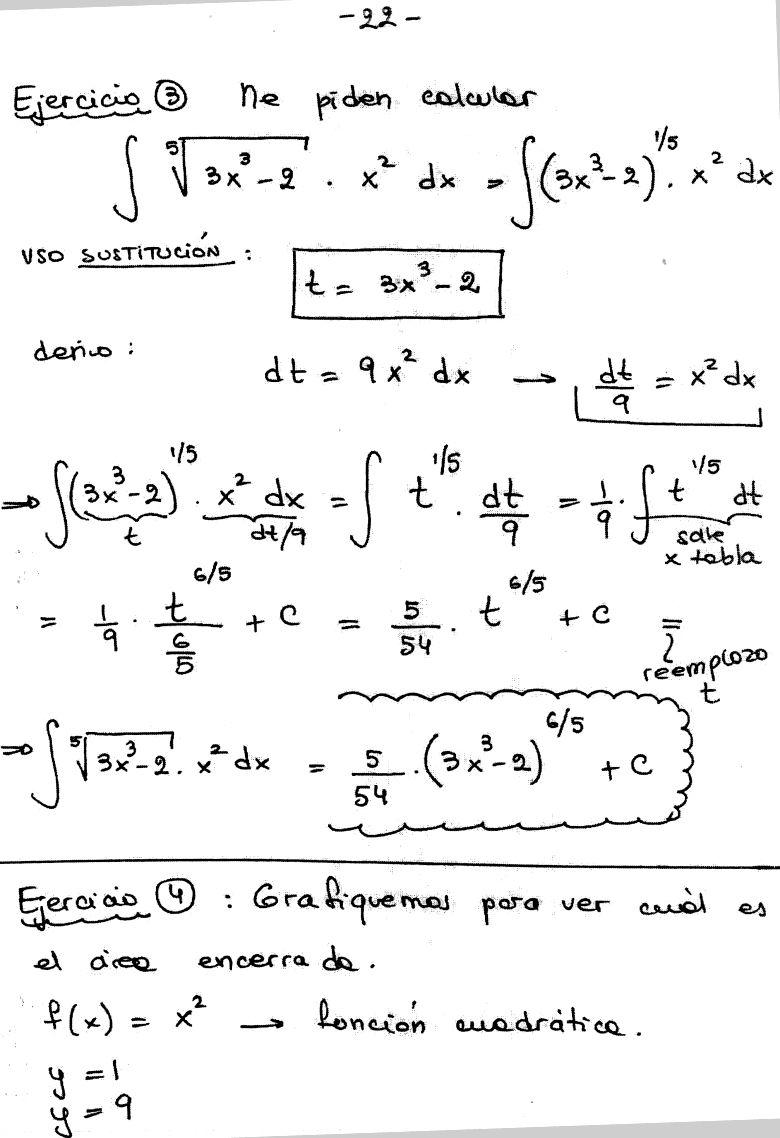 -22-
Ejercicio ③ Me piden calcular
∫ ⁵√(3x³-2) . x² dx = ∫(3x³-2)^(1/5) . x² dx
USO SUSTITUCIÓN :
t = 3x³-2
derivo :
dt = 9x² dx → dt/9 = x² dx
⇒ ∫(3x³-2)^(1/5) . x² dx = ∫ t^(1/5) . dt/9 = 1/9 . ∫ t^(1/5) dt
t dt/9 sale
x tabla
= 1/9 . t^(6/5)/(6/5) + C = 5/54 . t^(6/5) + C =
reemplazo
t
⇒ ∫ ⁵√(3x³-2) . x² dx = 5/54 . (3x³-2)^(6/5) + C
Ejercicio ④ : Grafiquemos para ver cuàl es
el área encerrada.
f(x) = x² → función cuadrática.
y = 1
y = 9